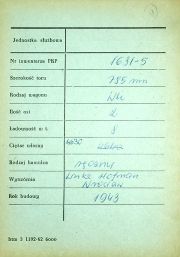 Jednostka służbowa
Nr inwentarza PKP 1631-5
Szerokość toru 785 mm
Rodzaj wagonu
Ilość osi 2
Ładowność w t. 8
Ciężar własny
Rodzaj hamulca ręczny
Wytwórnia Linke Hofman
Wrocław
Rok budowy 1943